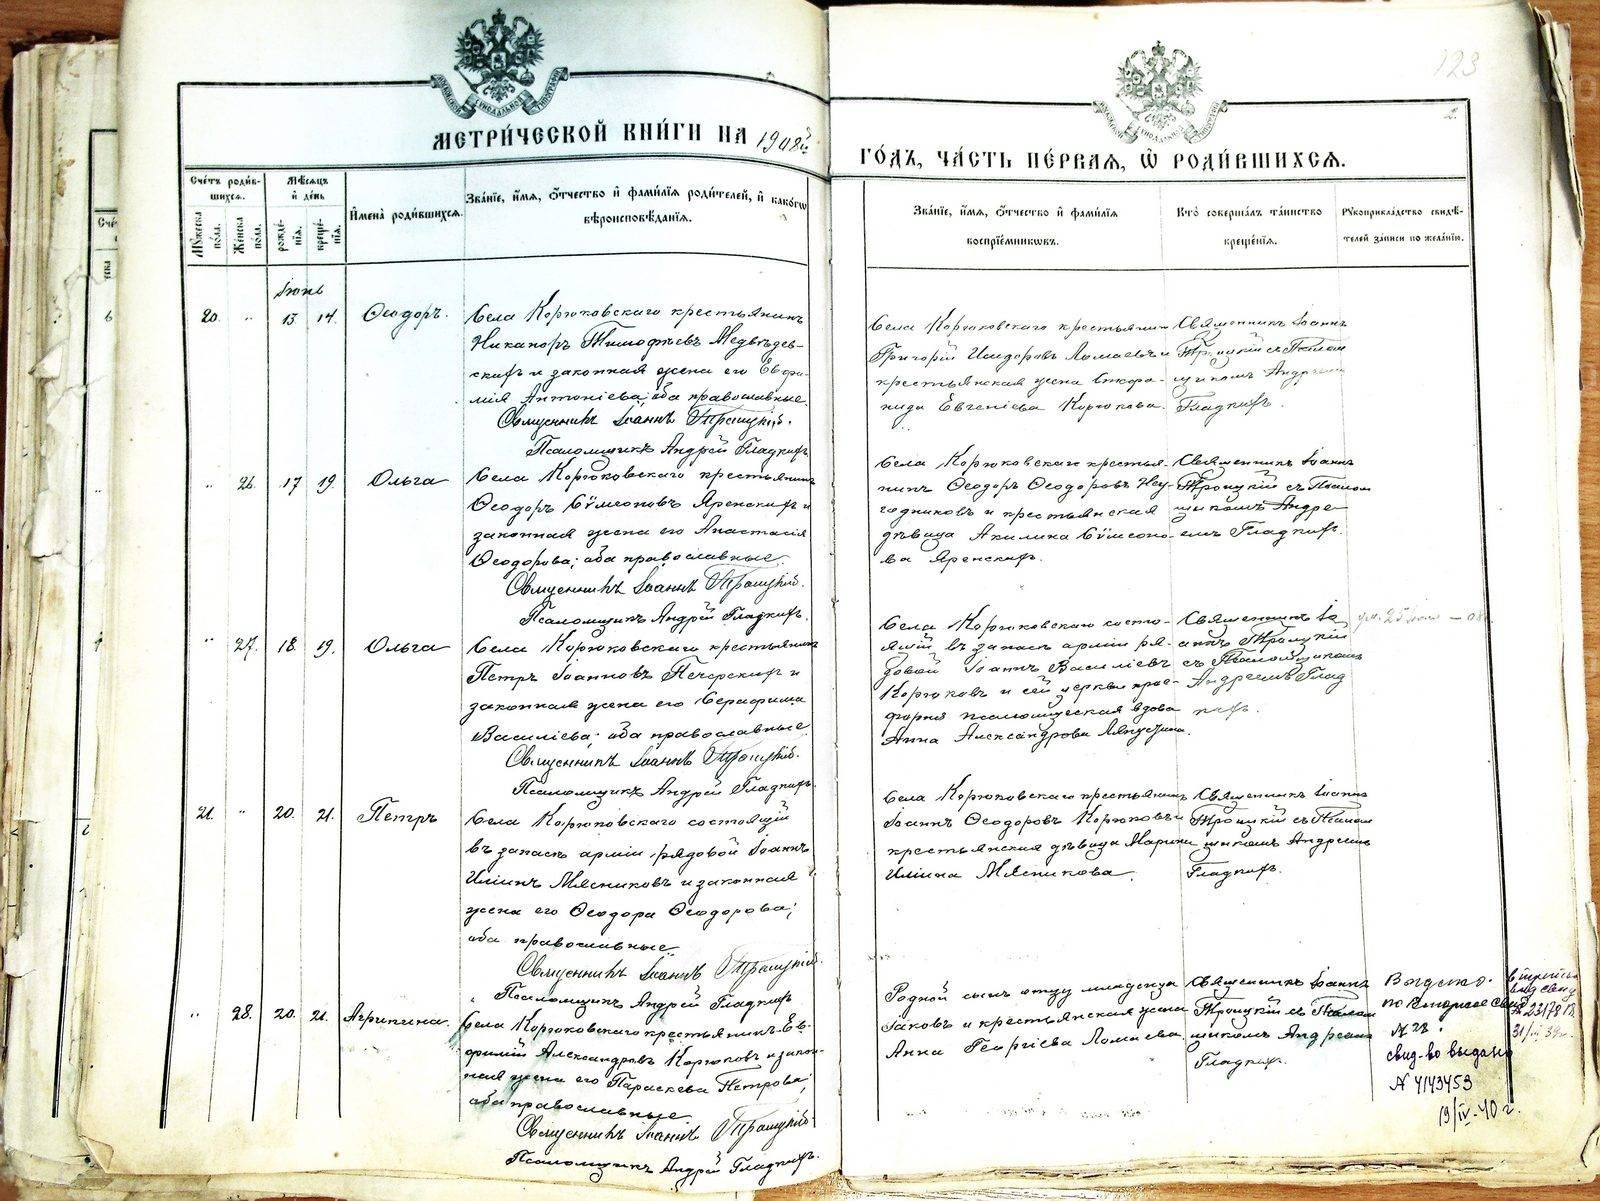 123
2.
МЕТРИ́ЧЕСКОЙ КНИ́ГИ НА 1908й
ГО́ДЪ, ЧА́СТЬ ПЕ́РВАЯ, Ѿ РОДИ́ВШИХСЯ.
Сче́тъ роди́в-
шихся.
Мѣ́сяцъ
и҆ де́нь
Мꙋ́жеска по́ла.
Же́нска по́ла.
рожде́-
нїя.
креще́-
нїя.
И҆мена̀ роди́вшихся.
Зва́нїе, и҆́мя, ѻ҆́тчество и҆ фами́лїя роди́телей, и҆ како́гѡ
вѣроисповѣ́данїя.
Зва́нїе, и҆́мя, ѻ҆́тчество и҆ фами́лїя
воспрїе́мникѡвъ.
Кто̀ соверша́лъ та́инство
креще́нїя.
Рꙋкоприкла́дство свидѣ́-
телей за́писи по жела́нїю.
Іюнь
20. " 13 14. Ѳеодоръ.
Села Корюковскаго крестьянинъ
Никаноръ Тимоѳѣевъ Медвѣдев-
скихъ и законная жена его Евфи-
мія Антоніева; оба православные.
Священникъ Іоаннъ Троицкій.
Псаломщикъ Андрей Гладкихъ
Села Корюковскаго крестьянин
Григорій Исидоровъ Ломаевъ и
крестьянская жена Степа-
нида Евгеніева Корюкова.
Священникъ Іоаннъ
Троицкій съ Псалом
щикомъ Андреемъ
Гладкихъ.
" 26. 17 19. Ольга
Села Корюковскаго крестьянинъ
Ѳеодоръ Сѵмеоновъ Яренскихъ и
законная жена его Анастасія
Ѳеодорова; оба православные
Священникъ Іоаннъ Троицкій.
Псаломщикъ Андрей Гладкихъ.
Села Корюковскаго крестья-
нинъ Ѳеодоръ Ѳеодоровъ Неу-
годниковъ и крестьянская
дѣвица Акилина Сѵмеоно-
ва Яренскихъ.
Священникъ Іоаннъ
Троицкій съ Псалом
щикомъ Андре-
емъ Гладкихъ.
" 27. 18. 19. Ольга
Села Корюковскаго крестьянинъ
Петръ Іоанновъ Печерскихъ и
законная жена его Серафима
Василіева; оба православные
Священникъ Іоаннъ Троицкій.
Псаломщикъ Андрей Гладкихъ.
Села Корюковскаго состо-
ящій въ запасѣ арміи ря-
довой Іоаннъ Василіевъ
Корюковъ и сей церкви прос-
форня псаломщеская вдова
Анна Александрова Ляпустина.
Священникъ Іо
аннъ Троицкій
съ Псаломщикомъ
Андреемъ Глад
кихъ.
ум. 25 – 08
21. " 20. 21. Петръ
Села Корюковскаго состоящій
въ запасѣ арміи рядовой Іоаннъ
Иліинъ Мясниковъ и законная
жена его Ѳеодора Ѳеодорова;
оба православные
Священникъ Іоаннъ Троицкій.
Псаломщикъ Андрей Гладкихъ
Села Корюковскаго крестьянинъ
Іоаннъ Ѳеодоровъ Корюковъ и
крестьянская дѣвица Марина
Иліина Мясникова.
Священникъ Іоаннъ
Троицкій съ Псалом
щикомъ Андреемъ
Гладкихъ.
" 28. 20. 21. Агрипина.
Села Корюковскаго крестьянинъ Ев-
фимій Александровъ Корюковъ и закон-
ная жена его Параскева Петрова;
оба православные
Священникъ Іоаннъ Троицкій.
Псаломщикъ Андрей Гладкихъ.
Родной сынъ отцу младенца
Іаковъ и крестьянская жена
Анна Георгіева Ломаева.
Священникъ Іоаннъ
Троицкій съ Псалом
щикомъ Андреемъ
Гладкихъ.
Выдано
свид-во выдано
№ 4143453
19/IV-40 г.